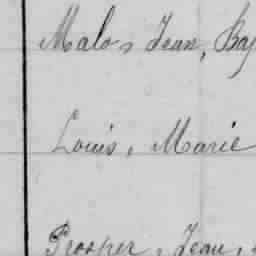 Malo, Jean, Baj
Louis, Marie
Prosper, Jean,